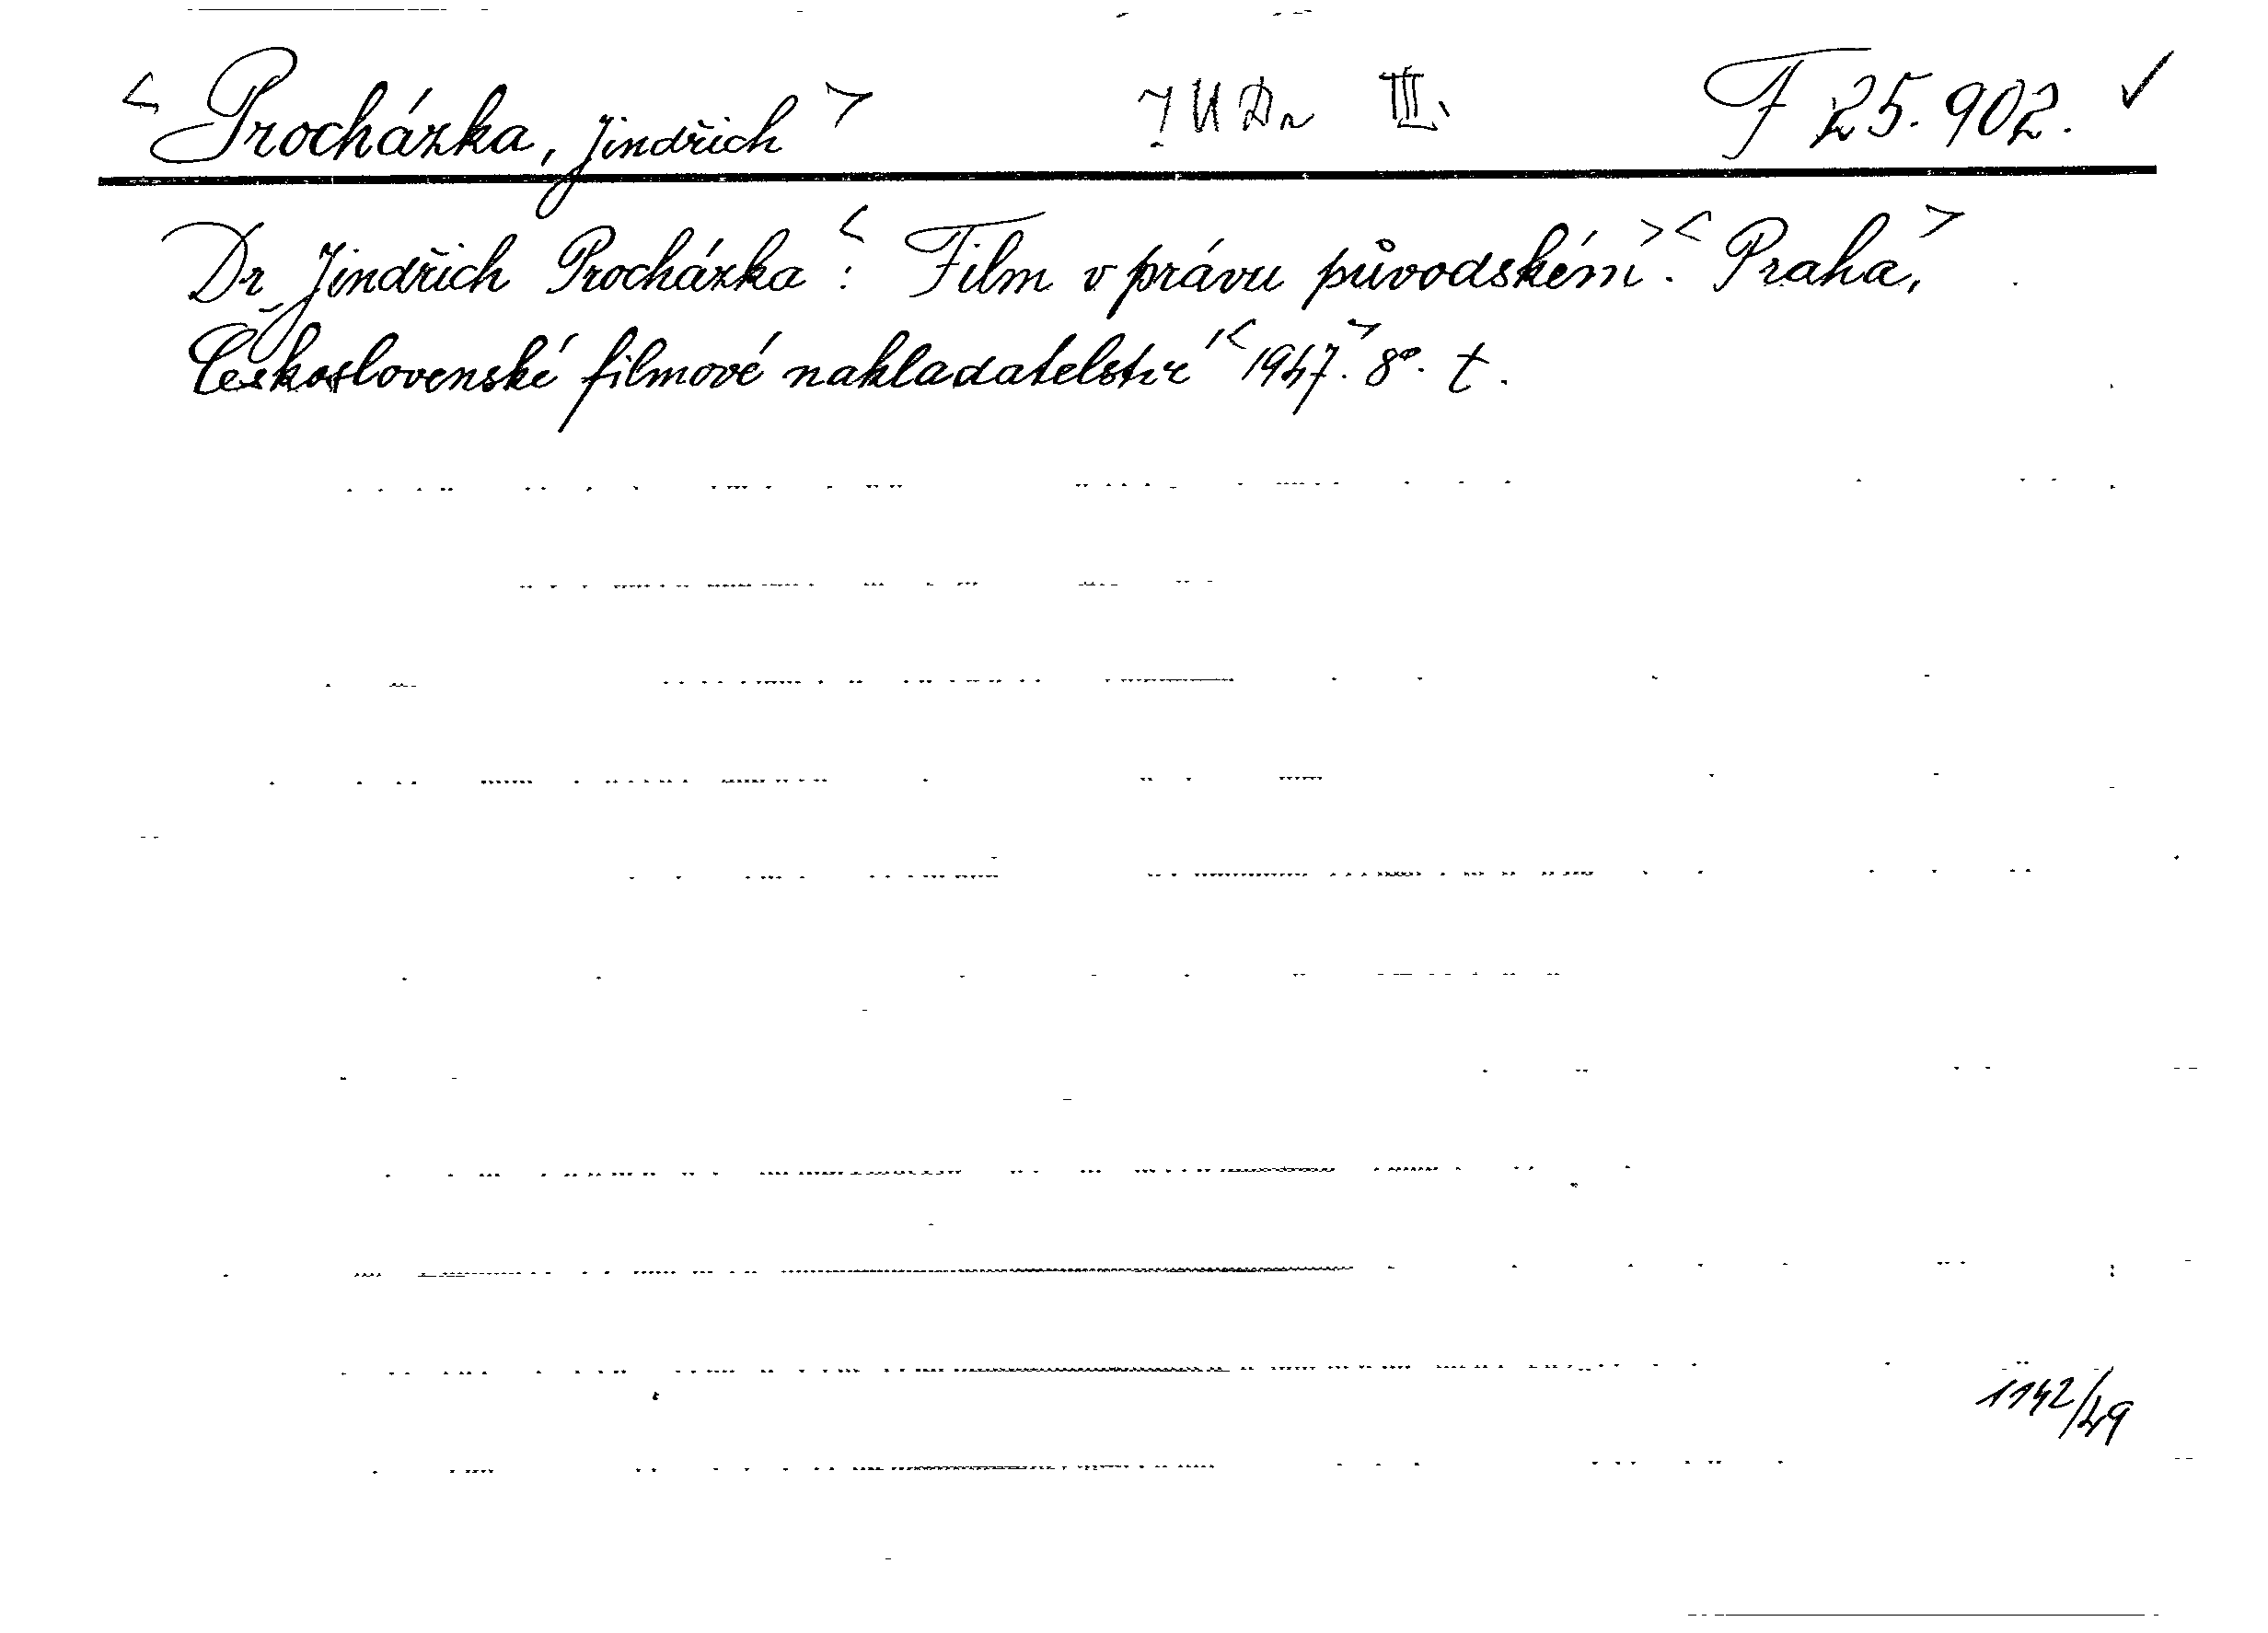 <Procházka, Jindřich> JUDr III. F 25.902. ✓
Dr Jindřich Procházka: <Film v právu původském>. <Praha,>
Československé filmové nakladatelství <1947>. 8°. t.
1142/49